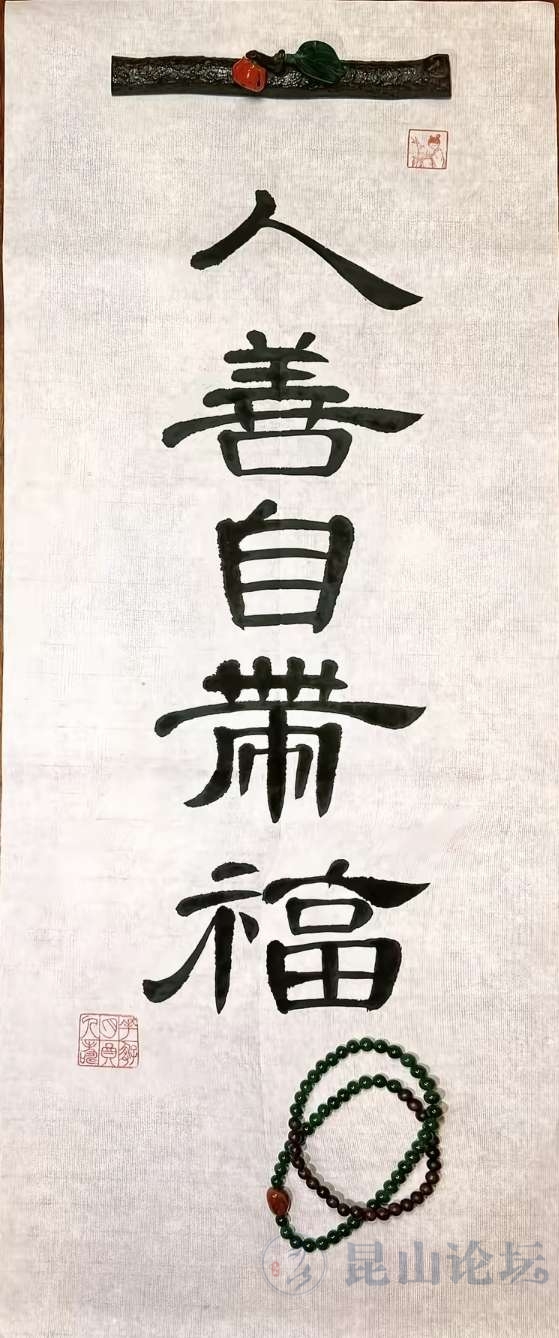 人善自带福
昆山论坛